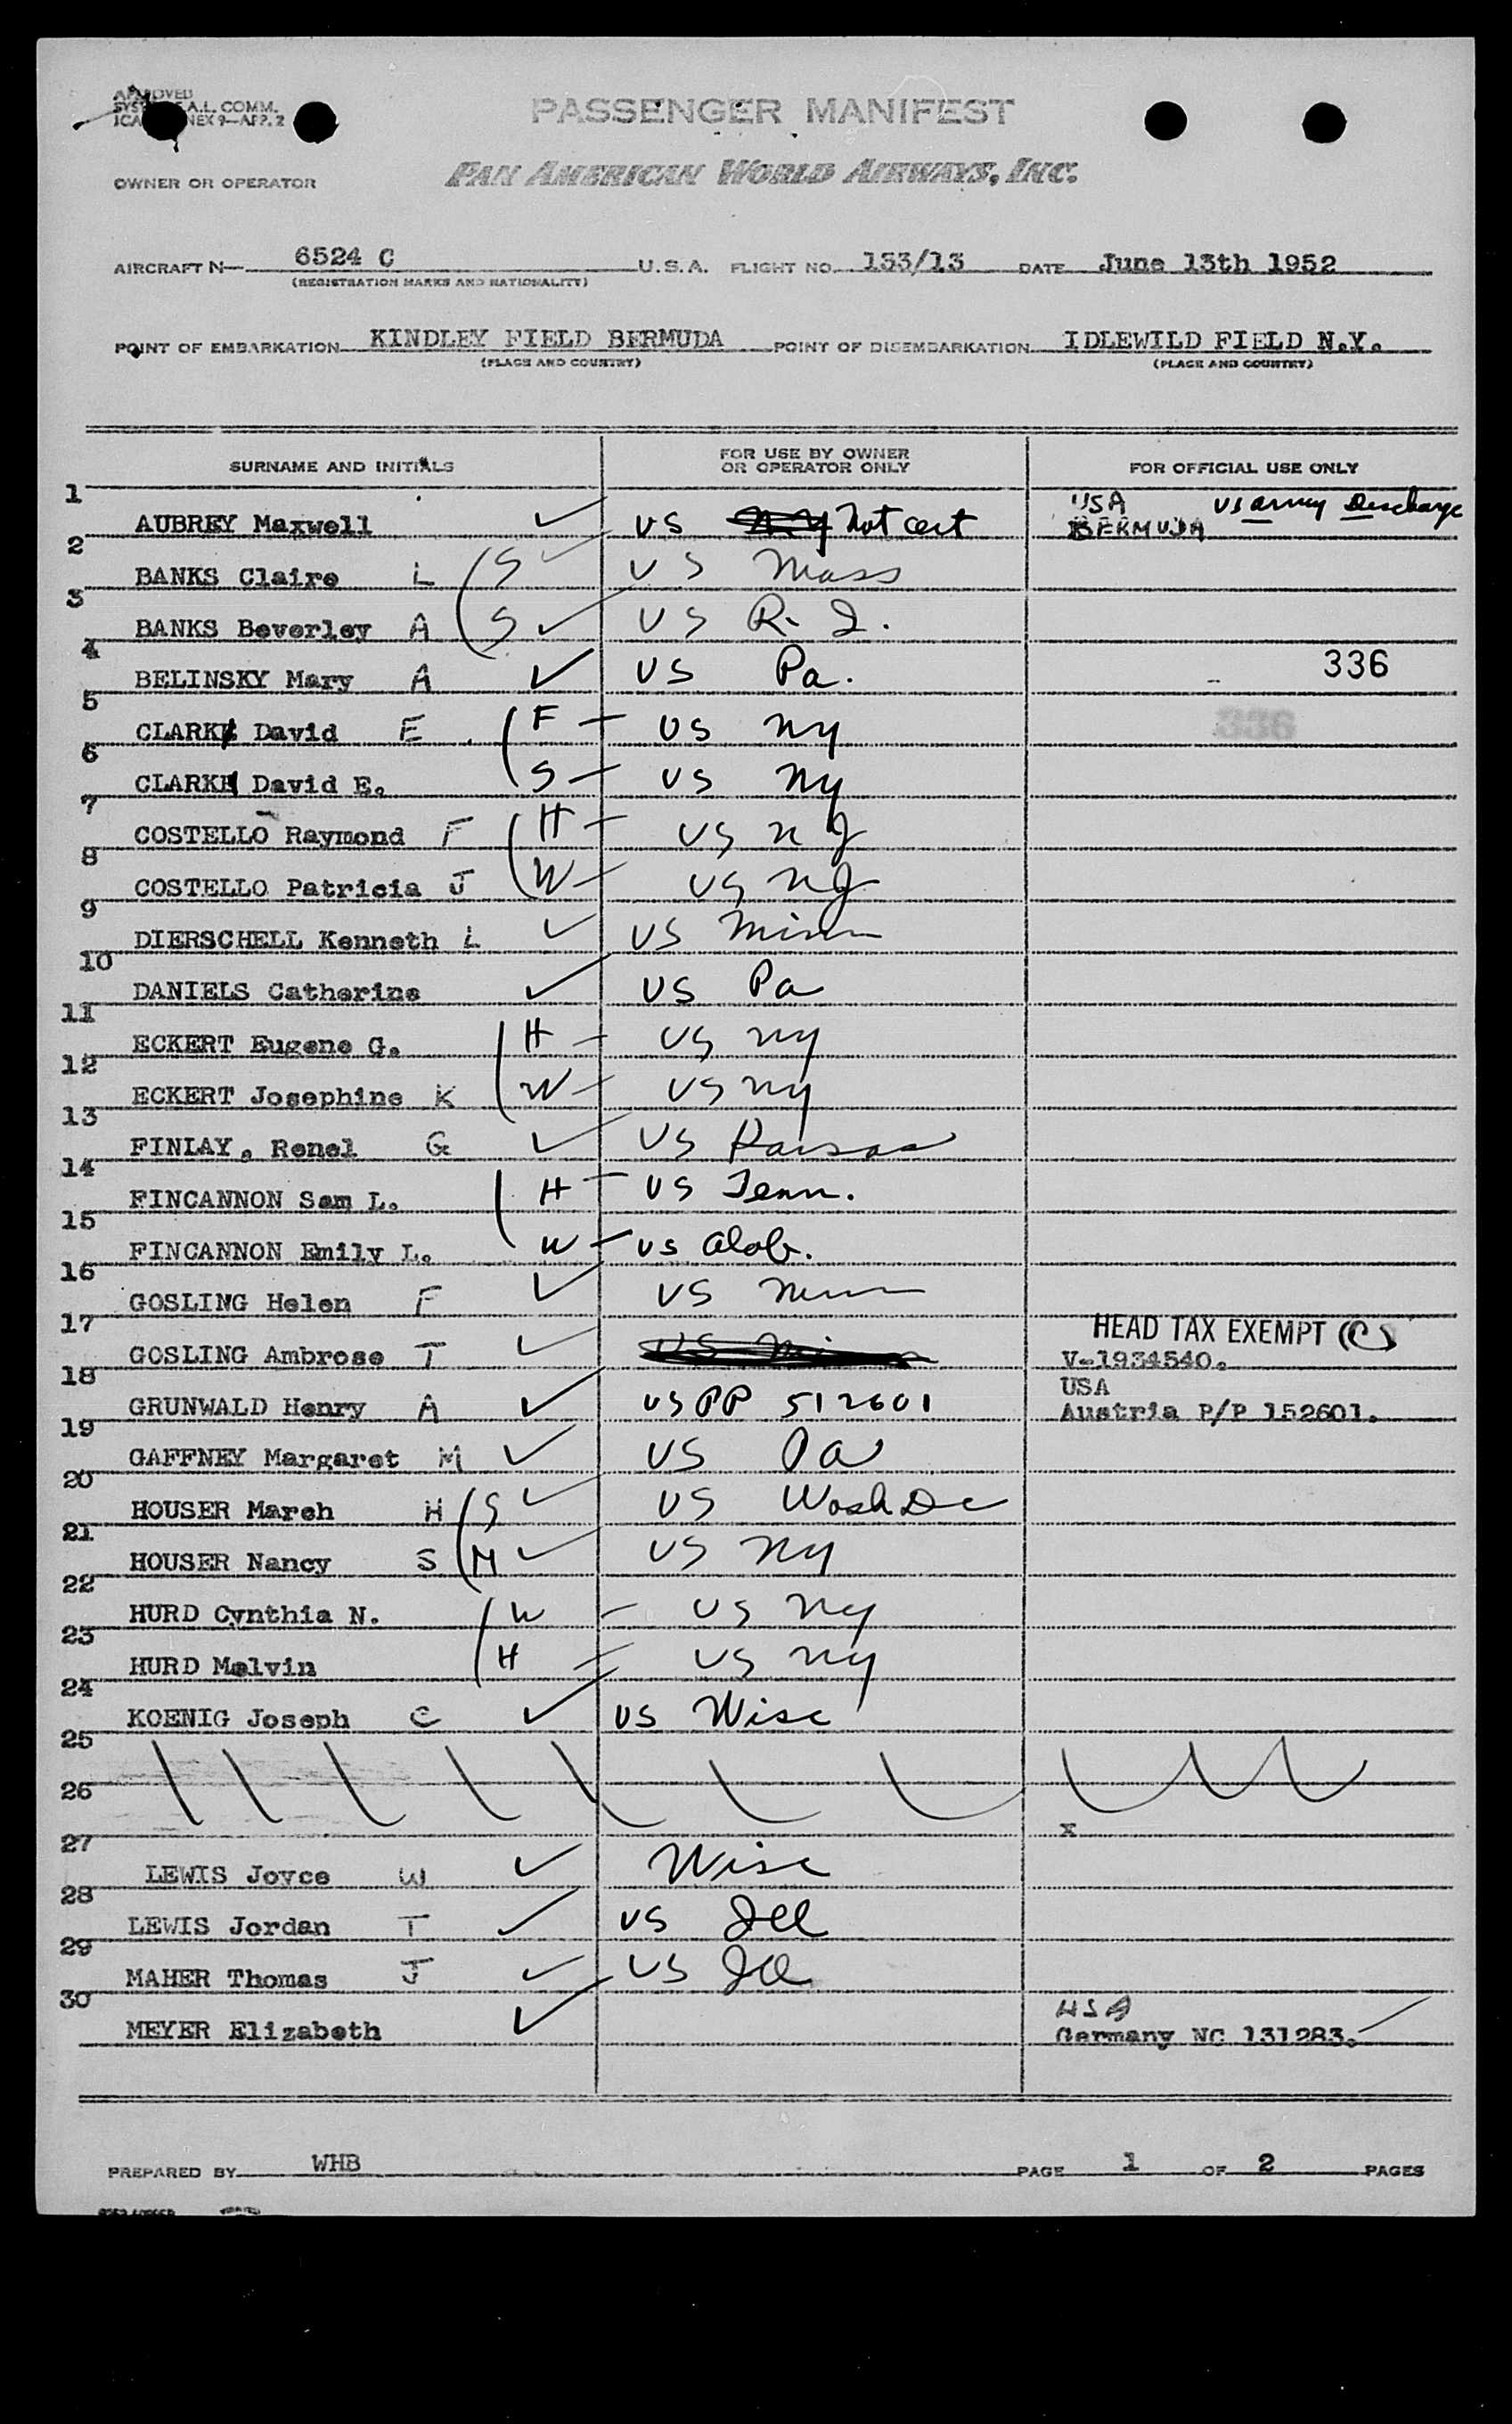 APPROVED
A.L. COMM.
PASSENGER MANIFEST
OWNER OR OPERATOR PAN AMERICAN WORLD AIRWAYS, INC.
AIRCRAFT N— 6524 C U.S.A. FLIGHT NO. 133/13 DATE June 13th 1952
(REGISTRATION MARKS AND NATIONALITY)
POINT OF EMBARKATION KINDLEY FIELD BERMUDA POINT OF DISEMBARKATION IDLEWILD FIELD N.Y.
(PLACE AND COUNTRY) (PLACE AND COUNTRY)
SURNAME AND INITIALS FOR USE BY OWNER OR OPERATOR ONLY FOR OFFICIAL USE ONLY
1 AUBREY Maxwell US Not cert USA BERMUDA US Army Discharge
2 BANKS Claire L S US Mass
3 BANKS Beverley A S US R.I.
4 BELINSKY Mary A US Pa. 336
5 CLARK David E F US NY 336
6 CLARK David E. S US NY
7 COSTELLO Raymond F H US NJ
8 COSTELLO Patricia J W US NJ
9 DIERSCHELL Kenneth L US Minn
10 DANIELS Catherine US Pa
11 ECKERT Eugene G. H US NY
12 ECKERT Josephine K W US NY
13 FINLAY, Renel G US Kansas
14 FINCANNON Sam L. H US Tenn.
15 FINCANNON Emily L. W US Alab.
16 GOSLING Helen F US
17 GOSLING Ambrose T HEAD TAX EXEMPT (C) V-1934540.
18 GRUNWALD Henry A US PP 512601 USA Austria P/P 152601.
19 GAFFNEY Margaret M US Pa
20 HOUSER Marsh H S US Wash DC
21 HOUSER Nancy S M US NY
22 HURD Cynthia N. W US NY
23 HURD Melvin H US NY
24 KOENIG Joseph C US Wisc
25
26
x
27 LEWIS Joyce W Wisc
28 LEWIS Jordan T US Ill
29 MAHER Thomas J US Ill
30 MEYER Elizabeth USA Germany NC 131283.
PREPARED BY WHB PAGE 1 OF 2 PAGES